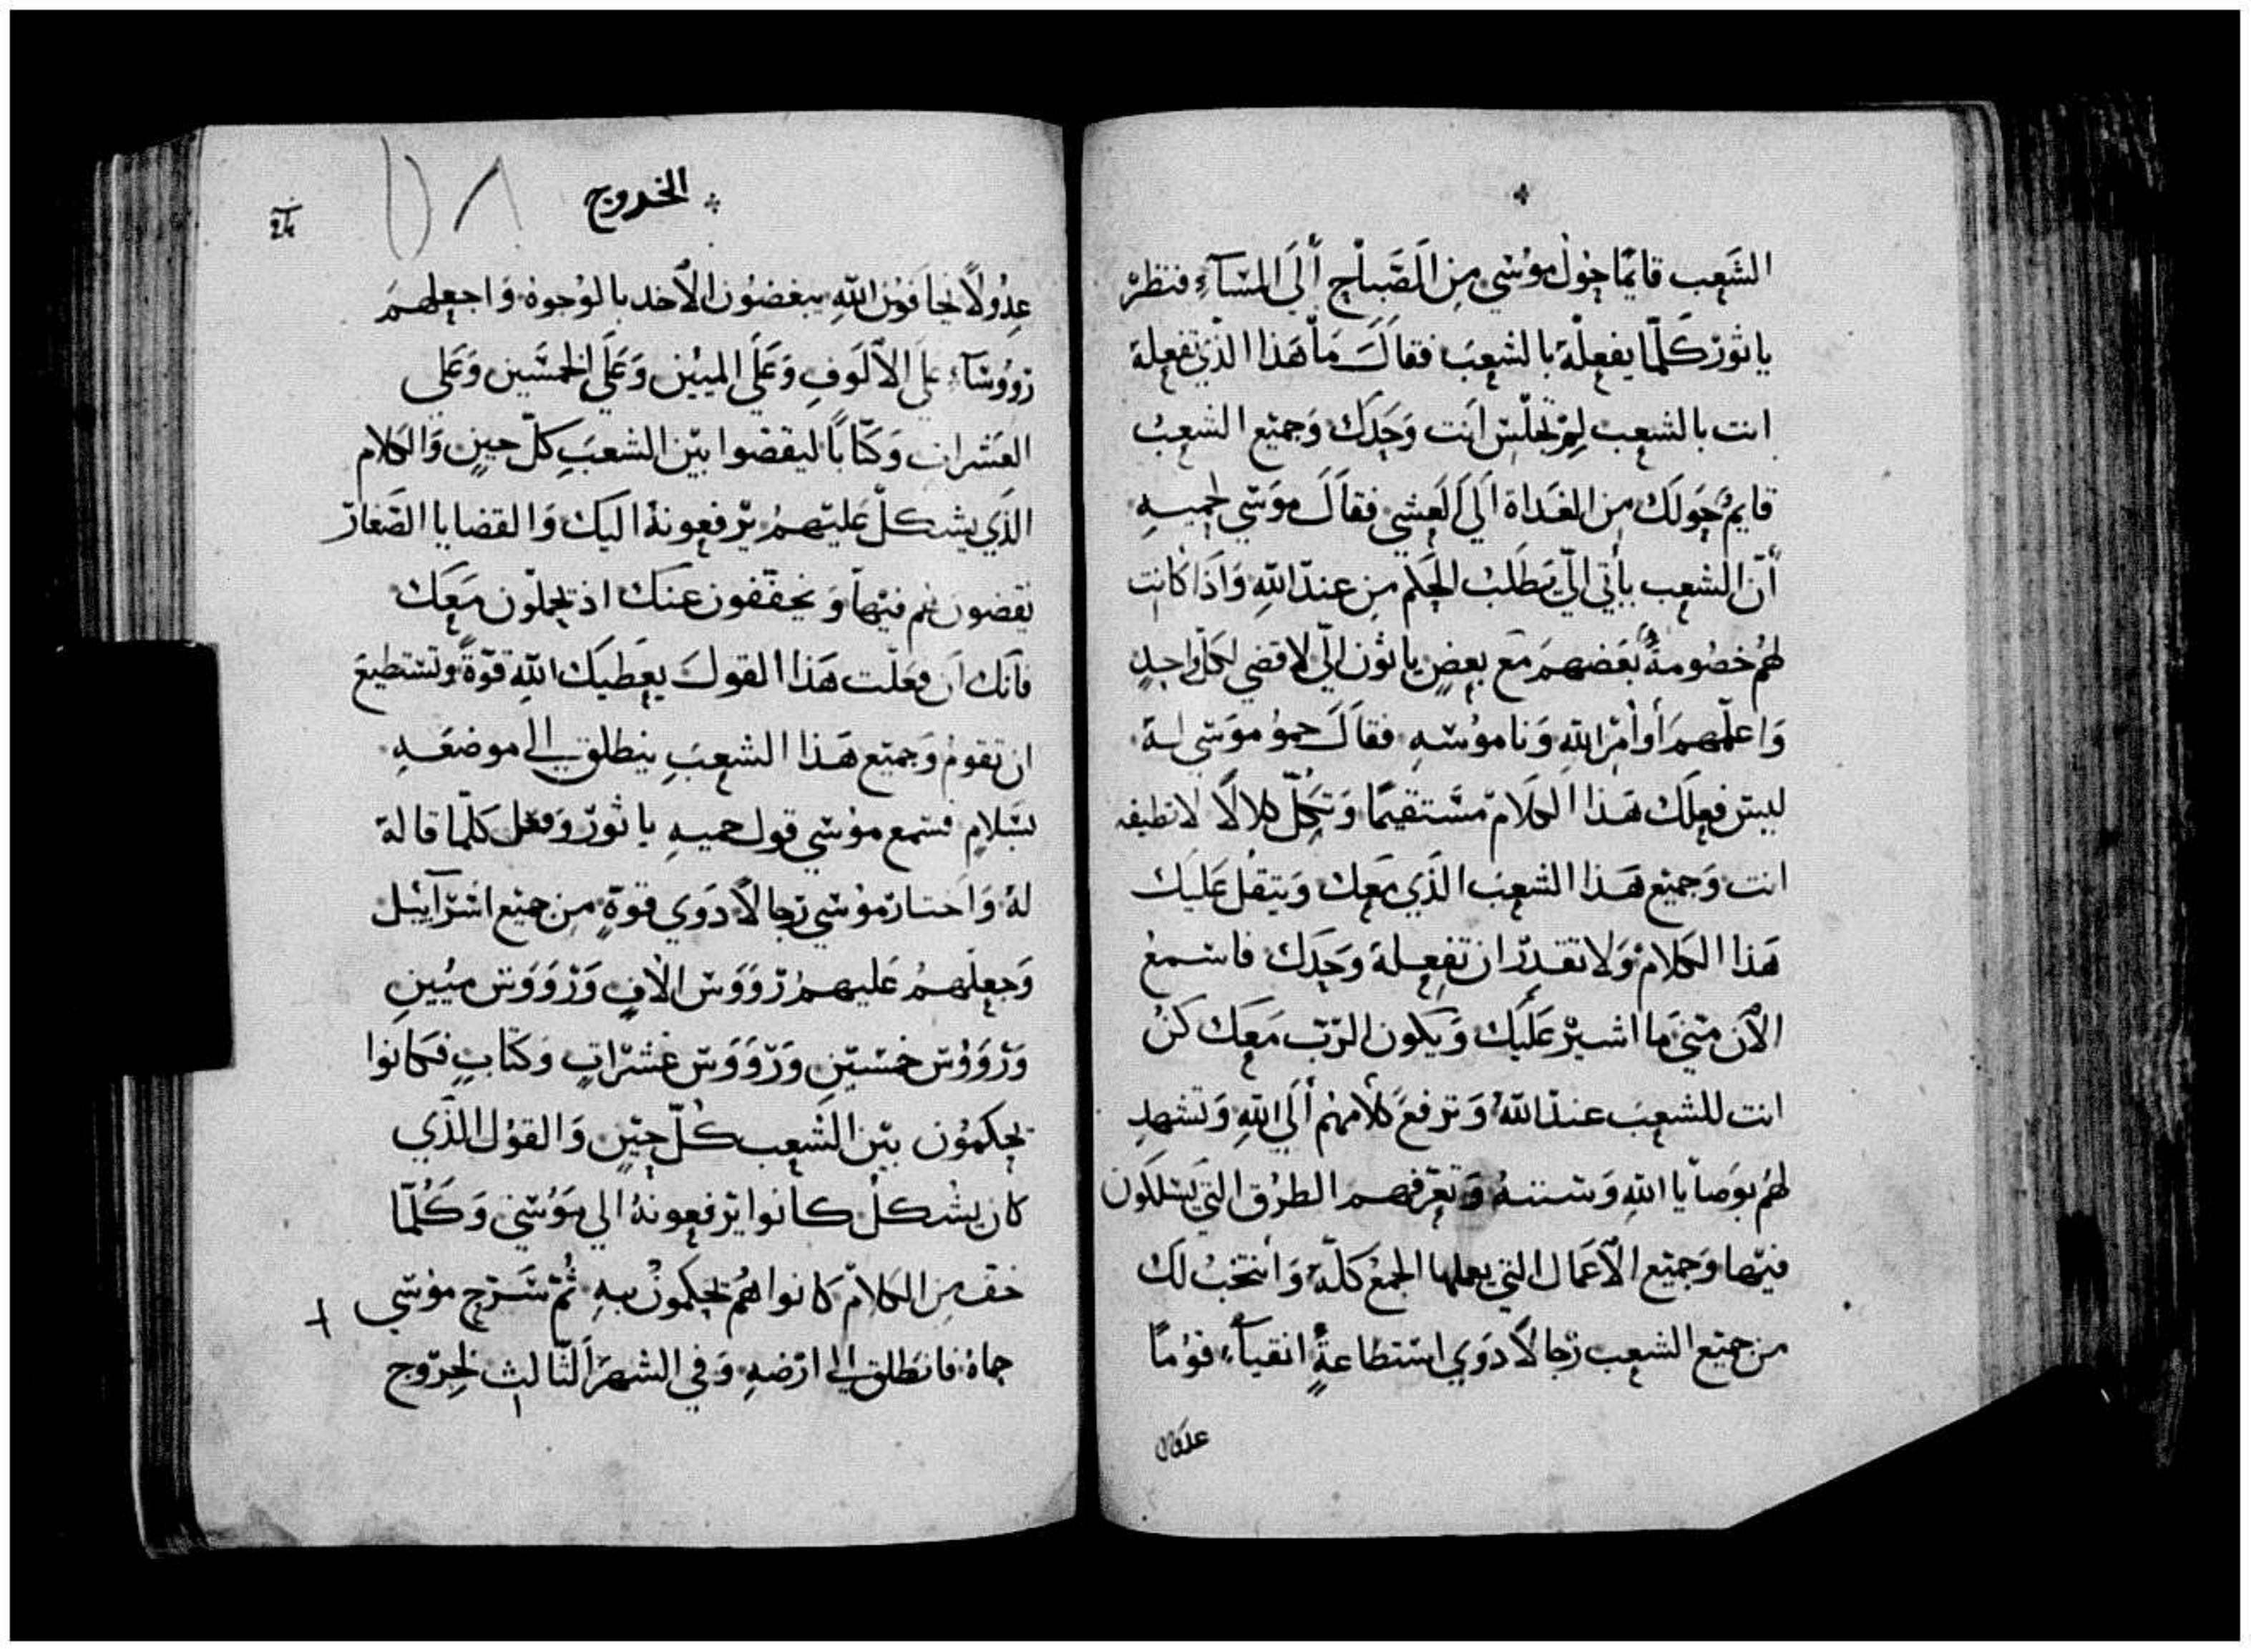 الشَعِب قايمًا حَول موُسَي مِن الَصَّباح أَلَي المسَآءِ فنظرَ
ياثورْ كَلّما يفعِلْهَ بالشعِبَ فقاَلَ مَا هَذا الذَي تفعِلة
انت بالشعِب لِمَ تجلسَ اَنت وَحَدك وَجميَع الشعبُ
قايمُ حَولَك مِن الغَداة اَلَي الَعشي فقاَلَ موَسَي لحميهِ
أَنّ الشعِب يأتي اليّ يَطلَب الحَكم مِن عندَ اللهِ وَاذَا كَانت
لهُم خصُومةُ بَعَضهمَ مَع بعِضٍ ياتوُن اليّ لاقضي لكلّ واحدٍ
وَاعلّمهمَ أَوأمْر اللهِ وَناموُسَهِ فقاَلَ حموُ موَسَي لهَ
ليسَ فعِلَك هَذا الكلامَ مسَتقيمًا وَتَكِلّ كلالًا لاتطيقه
انت وَجميَع هَذا الشعِبَ الذَي مَعِك وَيَثقل عَليَك
هَذا الكلامُ وَلا تقدرَ ان تفعِلهَ وحَدَك فاسَمعْ
الآن منيَ ما اشيرْ عَلَيك وَيكون الرَبّ مَعَك كنُ
انت للشعِبَ عندَ اللهُ وَترفعَ كلَامهُم أَلَي اللهِ وَتشهدِ
لهُم بوصَايا اللهِ وَسَننهُ وَتعِرّفهمَ الطرُق التي يَسَلكون
فيَها وَجميَع الآعمَال التي يعملها الجمعَ كلّهَ وَأنتخبُ لك
من جميَع الشعِب رَجالاً ذوَي اسَتطاعةٍ اتقياَءَ قوُمًا
عدولا
الخروج
24
عدِوُلاً يخافوُن اللهِ يبغضوُن الآخد بالوُجوهْ وَاجعلهمَ
رَووُسَآءِ علَي الآلَوفِ وَعَلَي الميُين وَعَلَي الخمسَين وَعَلي
العشَرات وَكتّابًا ليقضوا بيَن الشعَبِ كلّ حيِنٍ وَالكلام
الذَي يشكلّ عَليَهمُ يرَفعِونهُ اليَك وَالقضايا الصَغارَ
يَقضون هُم فيَها وَيخففون عنَك اذ يحملوُن مَعِك
فأنك اَن فعَلَت هَذا القولَ يعِطيَك اللهَ قوَةً وتسَتطيعَ
ان تقومُ وَجميَع هَذا الشعَبِ ينطلق الي موضعَهِ
بسَلامٍ فسَمع موُسَي قول حميهِ ياثورْ وَفعل كلّما قالهَ
لهُ وَاَختارَ موُسَي رَجالاً ذوَي قوَةٍ مِن جميَع اسَرآييُل
وَجعِلهمُ عَليهمُ رْوَوَسَ الاُفٍ وَرْوَوَسَ ميُينِ
وَرْوَوْسَ خمسَينِ وَرْوَوَسَ عَشرَاتٍ وَكتابٍ فكانوا
يحِكموُن بيَن الشعِب كُلّ حيِنٍ وَالقوُل الذَي
كان يشُكلْ كانوا يرَفعِونهُ الي موُسَيَ وَكُلّما
خف مِن الكلامَ كانوا هُم يحِكموُن بهِ ثُمّ سَرّحِ موُسَي
حماهْ فانطَلق الي ارَضهِ وَفي الشهرَ الثالثِ لخِروّج